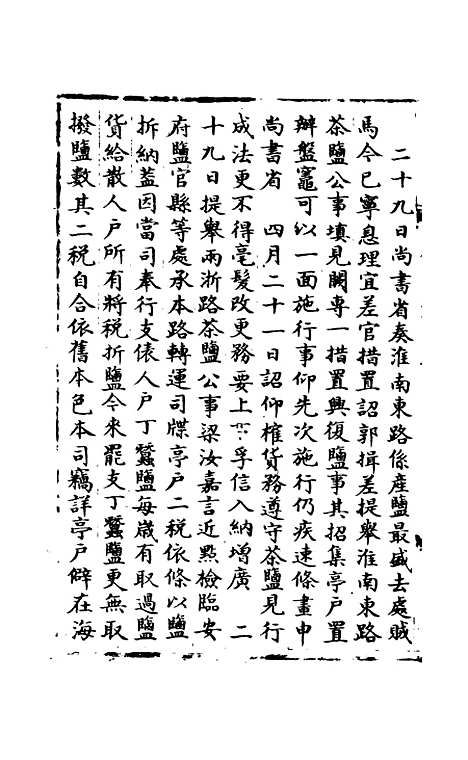 二十九日尚書省奏淮南東路係產鹽最盛去處賊
馬今已寧息理宜差官措置詔郭揖差提舉淮南東路
茶鹽公事填見闕專一措置興復鹽事其招集亭戶置
辦盤竈可以一面施行事仰先次施行仍疾速條畫申
尚書省 四月二十一日詔仰榷貨務遵守茶鹽見行
成法更不得毫髮改更務要上下孚信入納增廣 二
十九日提舉兩浙路茶鹽公事梁汝嘉言近點檢臨安
府鹽官縣等處承本路轉運司牒亭戶二稅依條以鹽
折納蓋因當司奉行支俵人戶丁蠶鹽每歲有取過鹽
貨給散人戶所有將稅折鹽今來罷支丁蠶鹽更無取
撥鹽數其二稅自合依舊本色本司竊詳亭戶僻在海